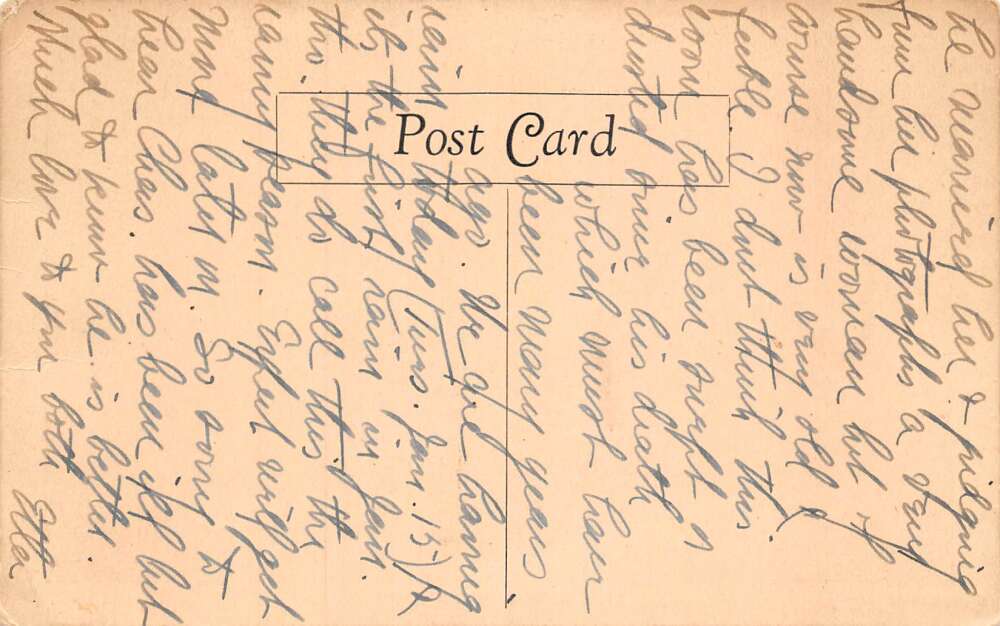 Post Card
he married her & judging
from her photographs a very
handsome woman but of
course now is very old &
feeble I dont think this
room has been swept or
dusted since his death
which must have
been many years
ago. We are having
rain today (Tues. Jan. 15) &
it's the first rain in Jan.
tho' they do call this the
rainy season. Expect will get
more later on. So sorry to
hear Chas. has been ill but
glad to know he is better.
Much love to you both
Etta